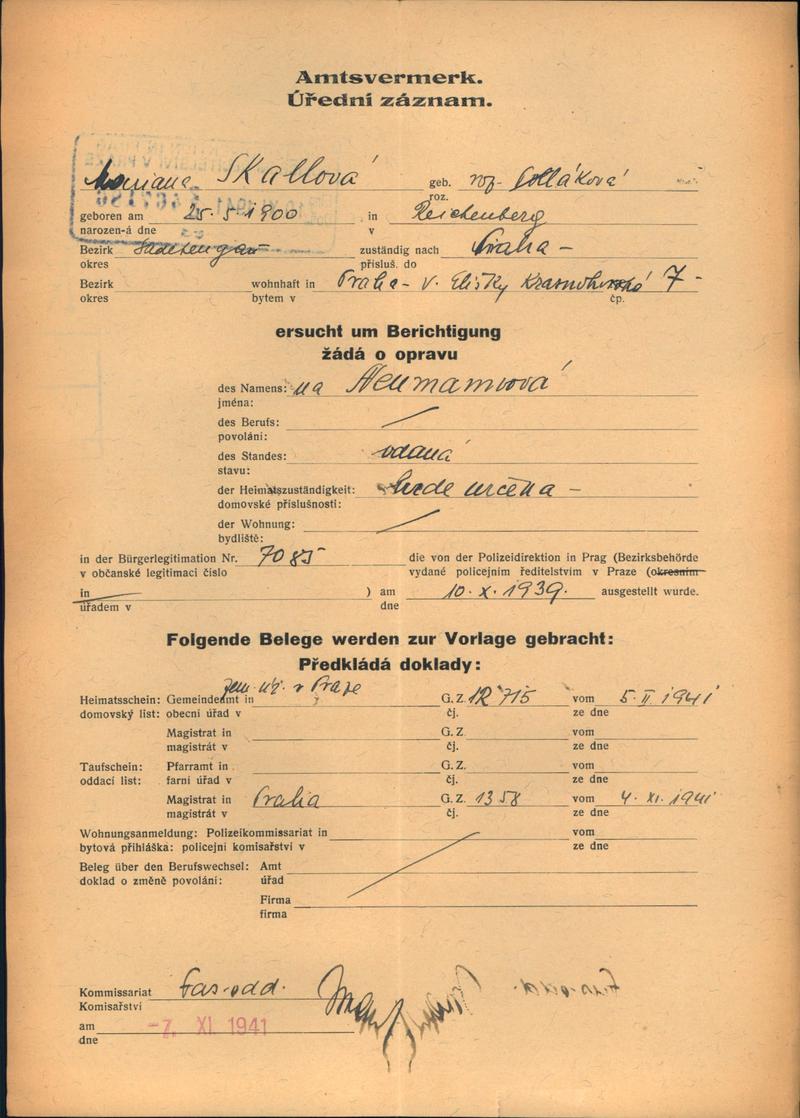 Amtsvermerk.
Úřední záznam.
Mariana Skallová geb. roz. Polláková
roz.
geboren am 25. 5. 1900 in Reichenberg
narozen-á dne v
Bezirk zuständig nach Praha –
okres přísluš. do
Bezirk wohnhaft in Praha – V. Elišky Krasnohorské 7 –
okres bytem v čp.
ersucht um Berichtigung
žádá o opravu
des Namens: na Neumannová
jména:
des Berufs:
povolání:
des Standes: vdaná
stavu:
der Heimatszuständigkeit: bude určena –
domovské příslušnosti:
der Wohnung:
bydliště:
in der Bürgerlegitimation Nr. 7085 die von der Polizeidirektion in Prag (Bezirksbehörde
v občanské legitimaci číslo vydané policejním ředitelstvím v Praze (okresním
in ) am 10. X. 1939. ausgestellt wurde.
úřadem v dne
Folgende Belege werden zur Vorlage gebracht:
Předkládá doklady:
zem. úř. v Praze
Heimatsschein: Gemeindeamt in G. Z. IR 715 vom 5. II. 1941
domovský list: obecní úřad v čj. ze dne
Magistrat in G. Z. vom
magistrát v čj. ze dne
Taufschein: Pfarramt in G. Z. vom
oddací list: farní úřad v čj. ze dne
Magistrat in Praha G. Z. 1358 vom 4. XI. 1941
magistrát v čj. ze dne
Wohnungsanmeldung: Polizeikommissariat in vom
bytová přihláška: policejní komisařství v ze dne
Beleg über den Berufswechsel: Amt
doklad o změně povolání: úřad
Firma
firma
Kommissariat Pas. odd.
Komisařství
am -7. XI. 1941
dne